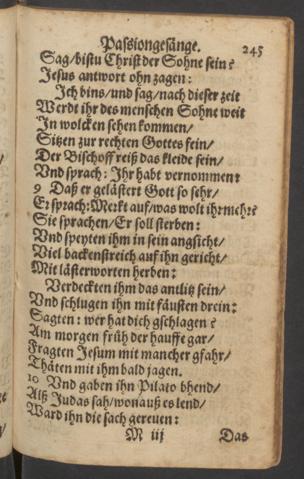 Passiongesänge. 245
Sag/bistu Christ der Sohne sein?
Jesus antwort ohn zagen:
Ich bins/und sag/nach dieser zeit
Werdt ihr des menschen Sohne weit
In wolcken sehen kommen/
Sitzen zur rechten Gottes fein/
Der Bischoff reiß das kleide sein/
Und sprach: Ihr habt vernommen:
9 Daß er gelästert Gott so sehr/
Er sprach: Merkt auf/was wolt ihr mehr?
Sie sprachen/Er soll sterben:
Und speyten ihm in sein angsicht/
Viel backenstreich auf ihn gericht/
Mit lästerworten herben:
Verdeckten ihm das antlitz sein/
Und schlugen ihn mit fäusten drein:
Sagten: wer hat dich gschlagen?
Am morgen früh der hauffe gar/
Fragten Jesum mit mancher gfahr/
Thäten mit ihm bald jagen.
10 Und gaben ihn Pilato bhend/
Alß Judas sah/wonauß es lend/
Ward ihn die sach gereuen:
M iij Das